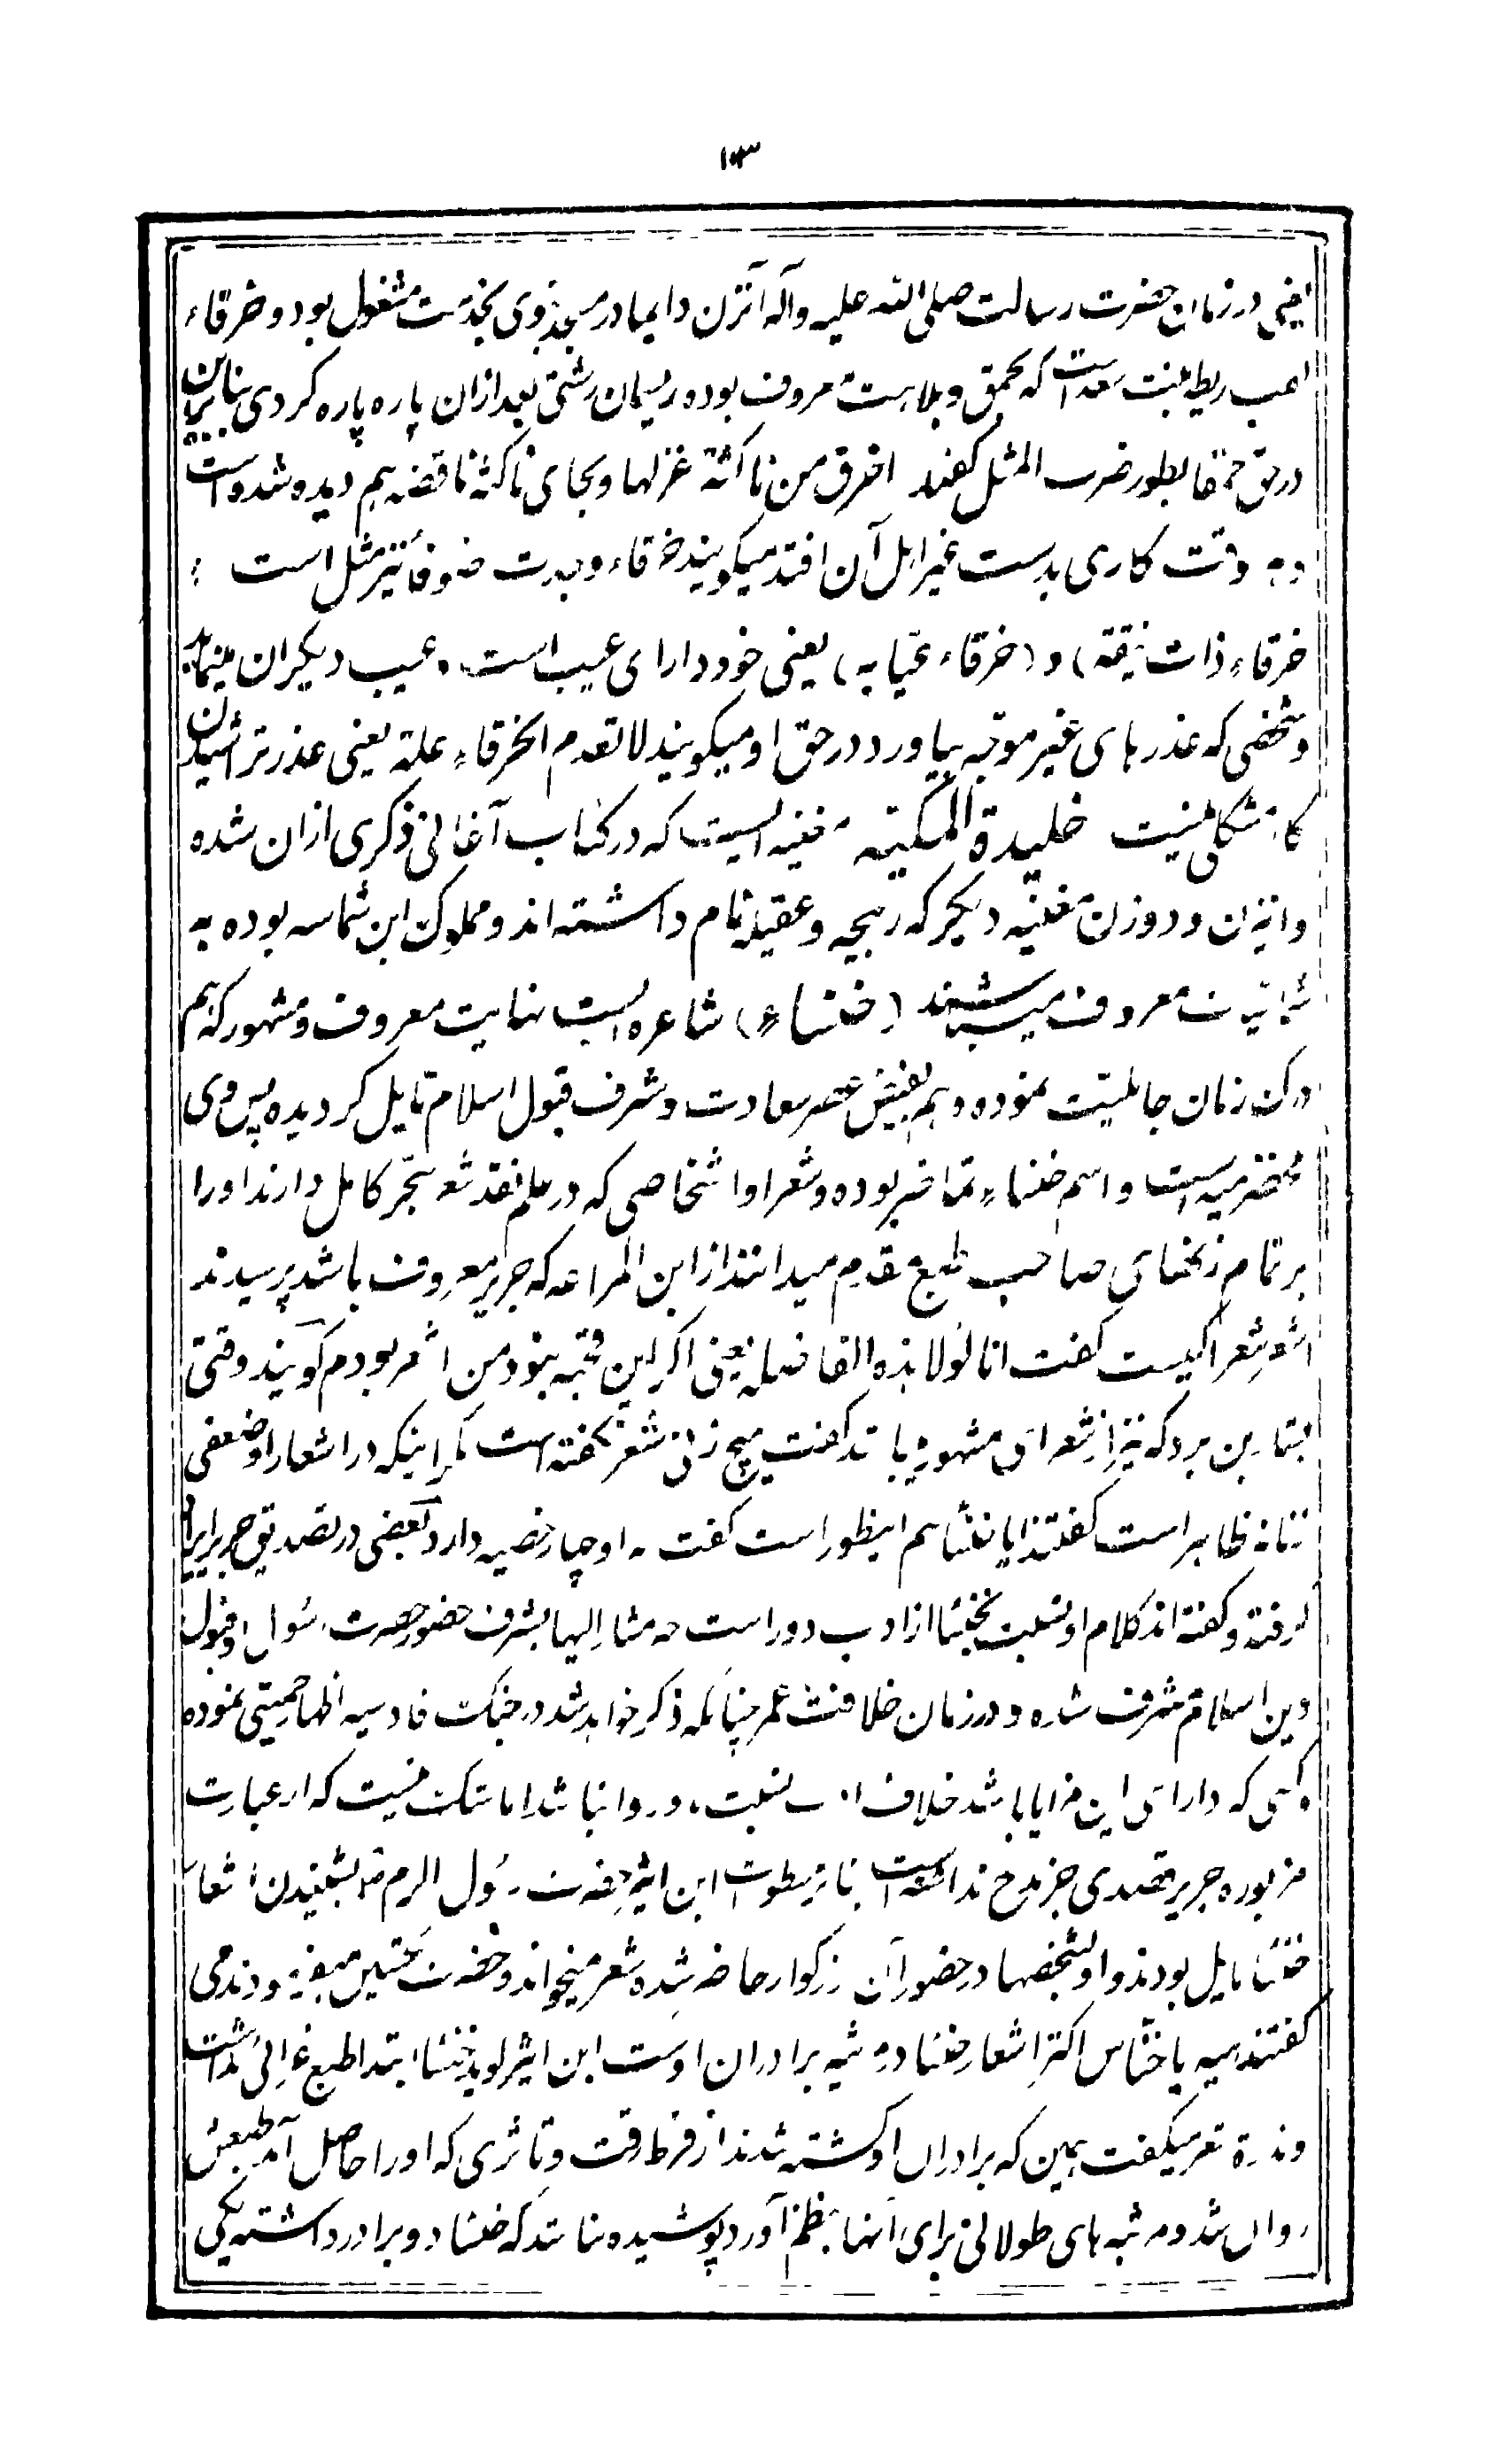 ۱۰۳
یعنی در زمان حضرت رسالت صلی الله علیه وآله آنزن دایما در مسجد نبوی بخدمت مشغول بود و خرقاء
لعب ریطه بنت سعد است که بحمق و بلاهت معروف بوده ریسمان رشتی بعد ازان پاره پاره کردی بنابرین
در حق حمقا بطور ضرب المثل گفتند اخرق من ناکثة غزلها و بجای ناکثه ناقضه هم دیده شده است
و به وقت کاری بدست غیر اهل آن افتد میگویند خرقاء وجدت صوفا نیز مثل است :
خرقاء ذات نیقة) و (خرقاء عیّابه) یعنی خود دارای عیب است و عیب دیگران مینماید
و شخصی که عذرهای غیر موجّه بیاورد در حق او میگویند لا تعدم الخرقاء علة یعنی عذر تراشیدن
کار مشکلی نیست خلیدة المکیّه مغنیه ایست که در کتاب آغانی ذکری ازان شده
و این زن و دو زن مغنیه دیگر که ربیحه و عقیله نام داشته اند و مملوک ابن شماسه بوده به
شماسیات معروف میباشند (خنساء) شاعره ایست نهایت معروف و مشهور که هم
درک زمان جاهلیّت نموده و هم بفیض عصر سعادت و شرف قبول اسلام نایل گردیده پس وی
مخضرمیه است و اسم خنساء تماضر بوده و شعرا و اشخاصی که در علم نقد شعر تبحّر کامل دارند او را
بر تمام زنهای صاحب طبع مقدم میدانند از ابن المراغه که جریر معروف باشد پرسیدند
اشعر شعرا کیست گفت انا لولا هذه الفاضله یعنی اگر این قحبه نبود من اشعر بودم گویند وقتی
بشار بن برد که نیز از شعرای مشهور باشد گفت هیچ زنی شعر نگفته است مگر اینکه در اشعار او ضعفی
زنانه ظاهر است گفتند آیا خنسا هم اینطور است گفت ـ او چهار خصیه دارد بعضی در تصدیق جریر ایراد
گرفته و گفته اند کلام او نسبت بخنسا از ادب دور است چه مشار الیها بشرف حضور حضرت رسول و قبول
دین اسلام مشرف شده و در زمان خلافت عمر چنانکه ذکر خواهد شد در جنگ قادسیه اظهار حمیتی نموده
و کسی که دارای این مزایا باشد خلاف ادب نسبت باو روا نباشد اما شک نیست که از عبارت
مزبوره جریر قصدی جز مدح نداشته است بنا بر مسطورات ابن اثیر حضرت رسول اکرم م بشنیدن اشعار
خنسا مایل بودند و او بشخصها در حضور آن بزرگوار حاضر شده شعر میخواند و حضرت تحسین میفرمودند و می
گفتند هیه یا خناس اکثر اشعار خنسا در مرثیه برادران اوست ابن اثیر گوید خنسا ابتدا طبع غرائی نداشت
و ندرة شعر میگفت همین که برادران او کشته شدند از فرط رقت و تأثری که او را حاصل آمد طبعش
روان شد و مرثیه های طولانی برای آنها بنظم آورد پوشیده نماند که خنسا دو برادر داشته یکی